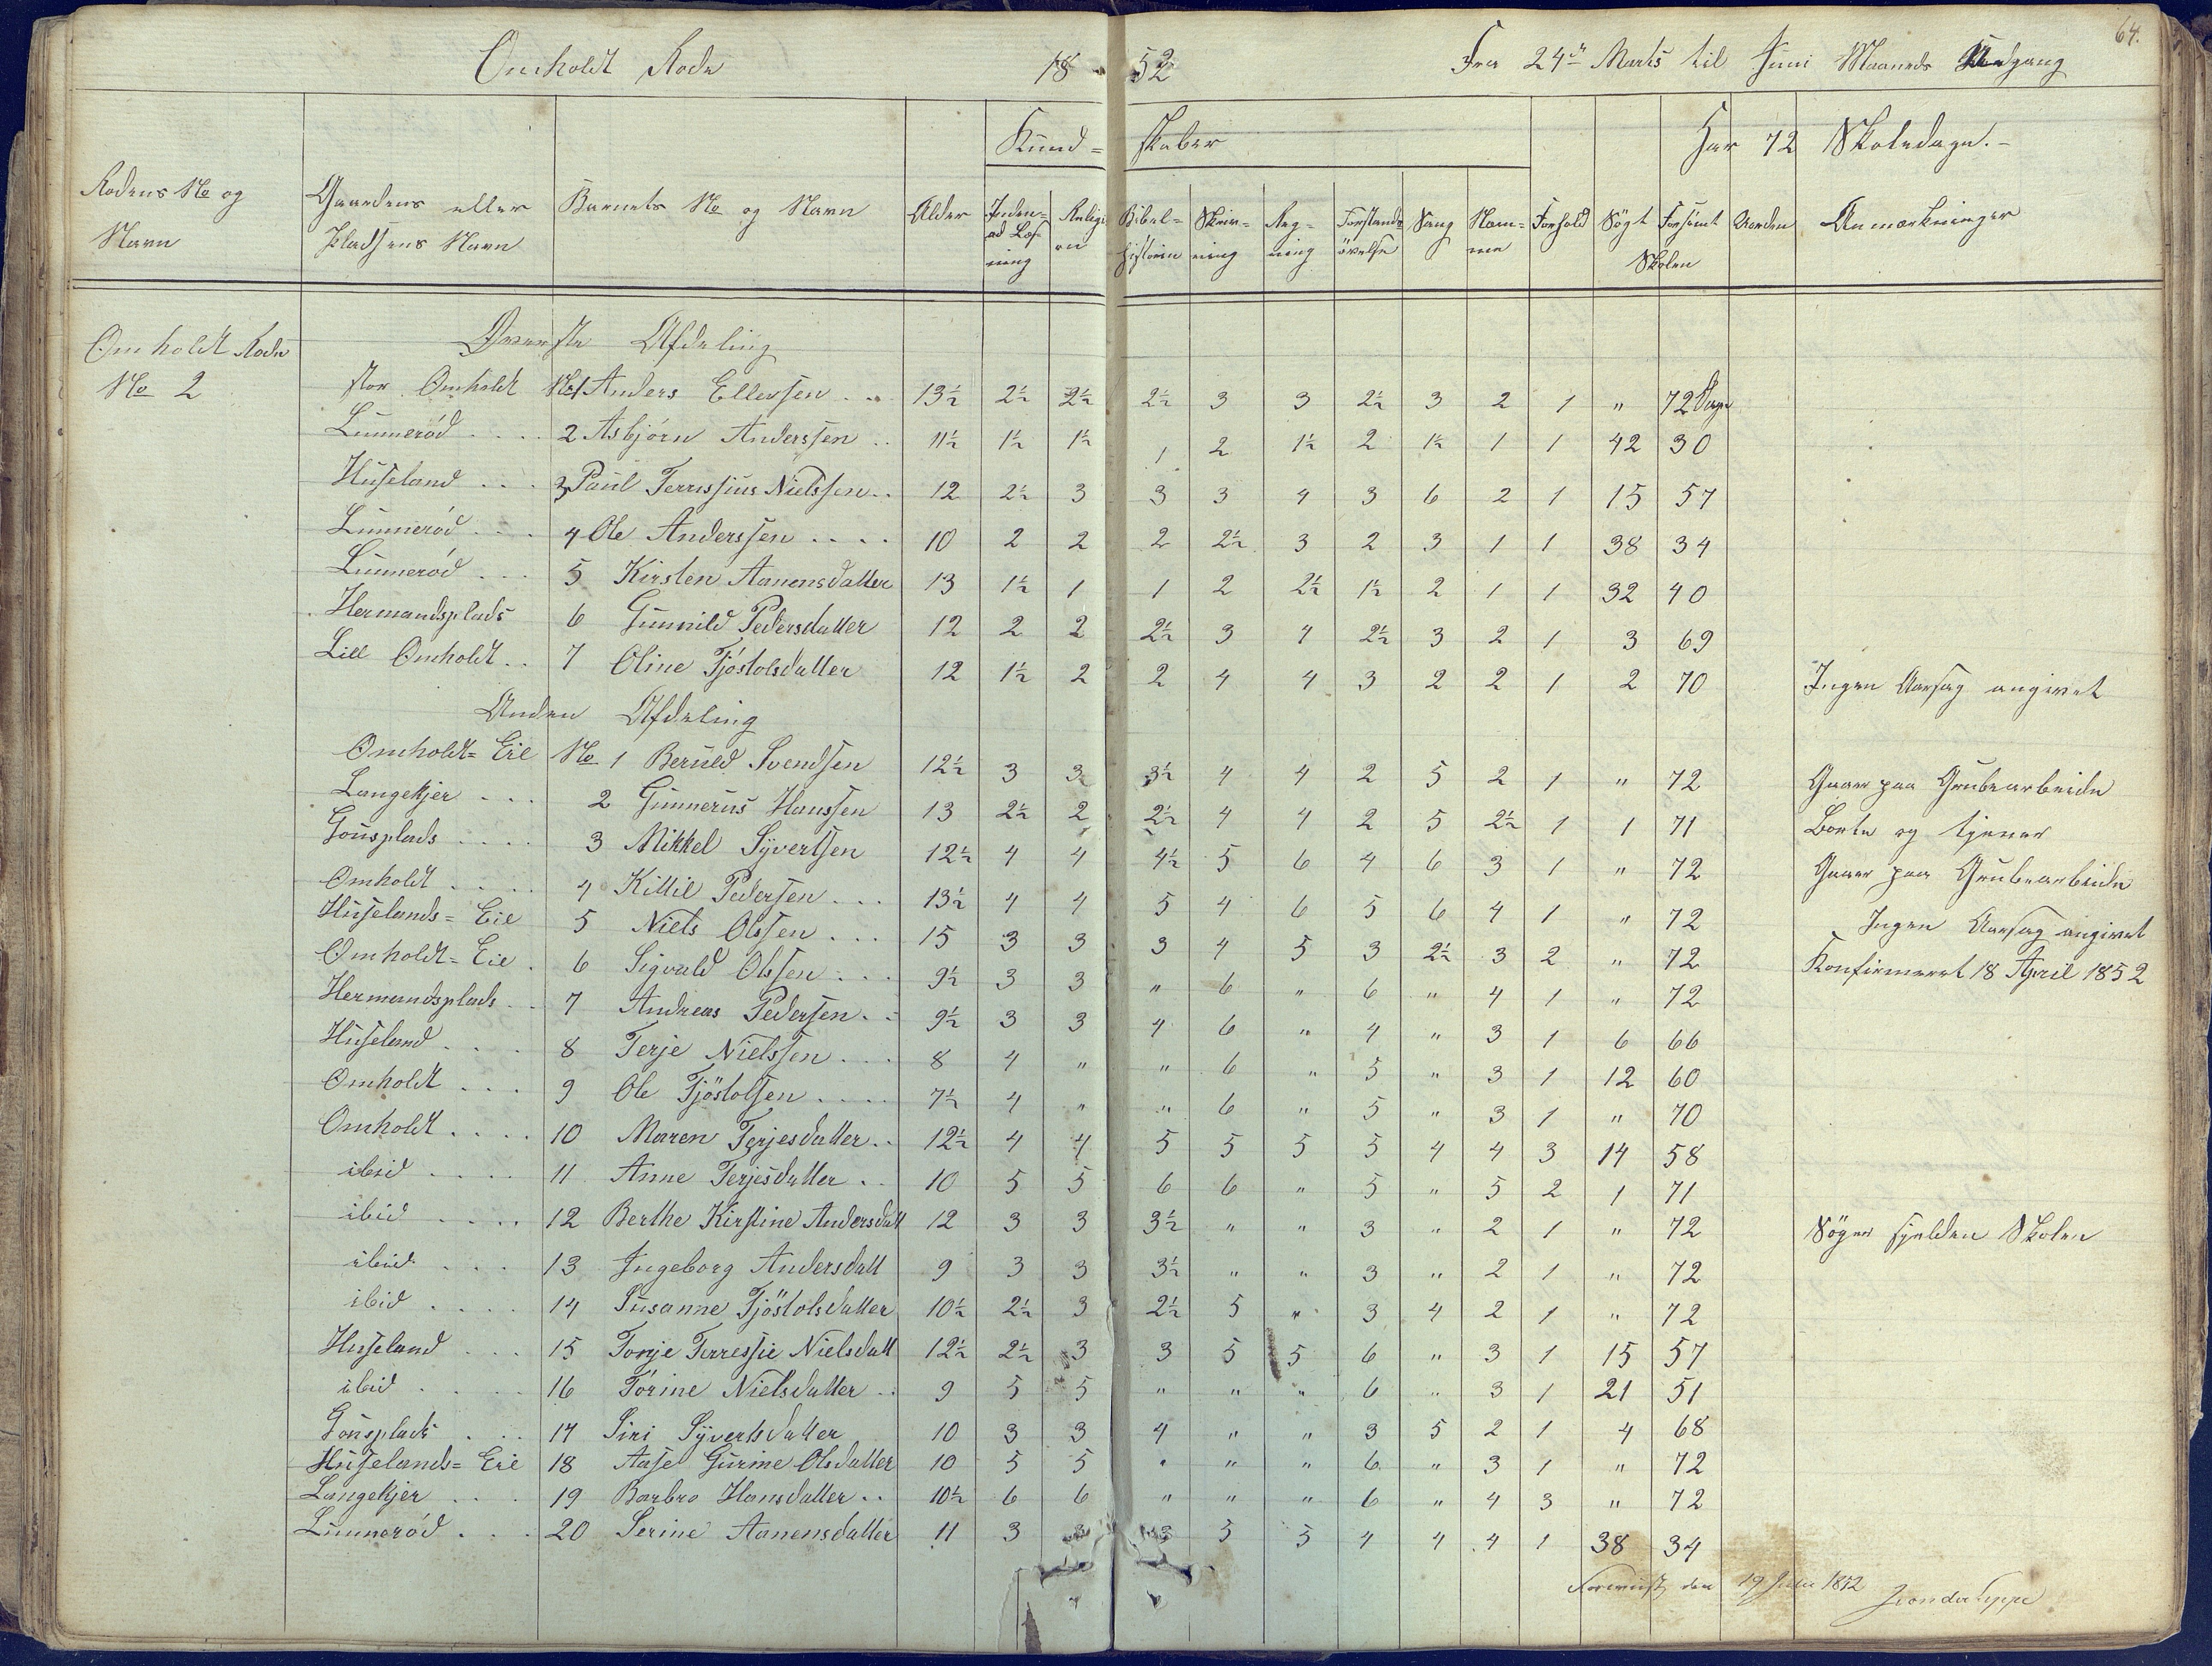 64.
Omholdt Rode 1852 Fra 24de Marts til Juni Maaneds Udgang
Kundskaber Har 72 Skoledage.-
Rodens No og Navn | Gaardens eller Pladsens Navn | Barnets No og Navn | Alder | Indenad Læsning | Religion | Bibelhistorie | Skrivning | Regning | Forstandsøvelse | Sang | Nemme | Forhold | Søgt | Forsømt Skolen | Orden | Anmærkninger
Omholdt Rode Øverste Afdeling
No 2 Stor Omholdt No 1 Anders Ellevsen . . 13½ 2½ 2½ 2½ 3 3 2½ 3 2 1 " 72 Dage
Lunnerød . . . . 2 Asbjørn Anderssen . . 11½ 1½ 1½ 1 2 1½ 2 1½ 1 1 42 30
Huseland . . . 3 Paul Terressius Nielssen . . 12 2½ 3 3 3 4 3 6 2 1 15 57
Lunnerød . . . 4 Ole Anderssen . . . . 10 2 2 2 2½ 3 2 3 1 1 38 34
Lunnerød . . . 5 Kirsten Aanensdatter 13 1½ 1 1 2 2½ 1½ 2 1 1 32 40
Hermandsplads 6 Gunnild Pedersdatter 12 2 2 2½ 3 4 2½ 3 2 1 3 69
Lill Omholdt . . 7 Oline Tjöstolsdatter 12 1½ 2 2 4 4 3 2 2 1 2 70 Ingen Aarsag angivet
Anden Afdeling
Omholdt=Eie No 1 Beruld Svendsen 12½ 3 3 3½ 4 4 2 5 2 1 " 72 Gaaer paa Grubearbeide
Langekjer . . . 2 Gunnerus Hanssen 13 2½ 2 2½ 4 4 2 5 2½ 1 1 71 Borte og tjener
Gonsplads . . . . 3 Mikkel Syvertsen 12½ 4 4 4½ 5 6 4 6 3 1 " 72 Gaaer paa Grubearbeide
Omholdt . . . . 4 Kittil Pedersen . . . 13½ 4 4 5 4 6 5 6 4 1 " 72 Ingen Aarsag angivet
Huselands=Eie 5 Niels Olssen . . . 15 3 3 3 4 5 3 2½ 3 2 " 72 Konfirmeret 18 April 1852
Omholdt=Eie . 6 Sigvald Olssen . . . 9½ 3 3 " 6 " 6 " 4 1 " 72
Hermandsplads . . 7 Andreas Pedersen . . 9½ 3 3 4 6 " 4 " 3 1 6 66
Huseland . . . 8 Terje Nielssen . . . 8 4 " " 6 " 5 " 3 1 12 60
Omholdt . . . 9 Ole Tjöstolsen . . . . 7½ 4 " " 6 " 5 " 3 1 " 70
Omholdt . . . . 10 Maren Terjesdatter . . 12½ 4 4 5 5 5 5 4 4 3 14 58
ibid . . . . 11 Anne Terjesdatter . . 10 5 5 6 6 " 5 " 5 2 1 71
ibid . . . . 12 Berthe Kirstine Andersdatt 12 3 3 3½ " " 3 " 2 1 " 72 Søger sjelden Skolen
ibid . . . 13 Ingeborg Andersdatt 9 3 3 3½ " " 3 " 2 1 " 72
ibid . . . . 14 Susanne Tjöstolsdatter 10½ 2½ 3 2½ 5 " 3 4 2 1 " 72
Huseland . . . 15 Tonje Terressie Nielsdatt 12½ 2½ 3 3 5 5 6 " 3 1 15 57
ibid . . . . 16 Torine Nielsdatter . . 9 5 5 " " " 6 " 3 1 21 51
Gonsplads . . . 17 Siri Syvertsdatter 10 3 3 4 " " 3 5 2 1 4 68
Huselands=Eie 18 Aase Gurine Olsdatter 10 5 5 " " " 6 " 3 1 " 72
Langekjer . . . 19 Barbro Hansdatter . . 10½ 6 6 " " " 6 " 4 3 " 72
Lunnerød . . . 20 Serine Aanensdatter 11 3 3 3 5 5 4 4 4 1 38 34
Foreviist den 19 Julii 1852